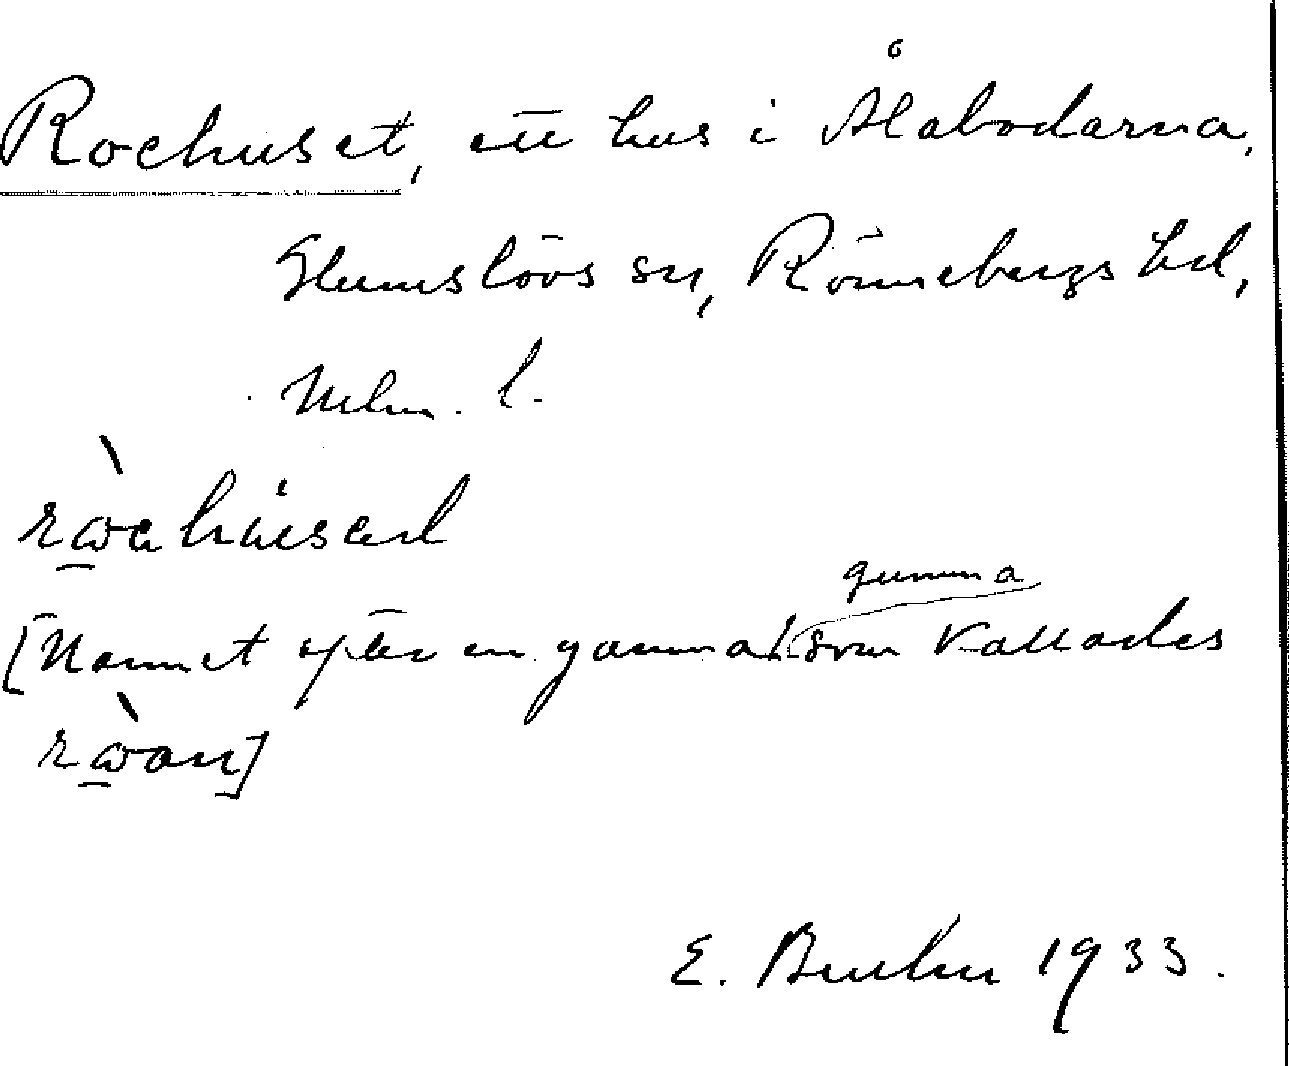 Roehuset, ett hus i Ålabodarna,
Glumslövs sn, Rönnebergs hd,
Mlm. l.
[Namnet efter en gammal gumma som kallades
E. 1933.